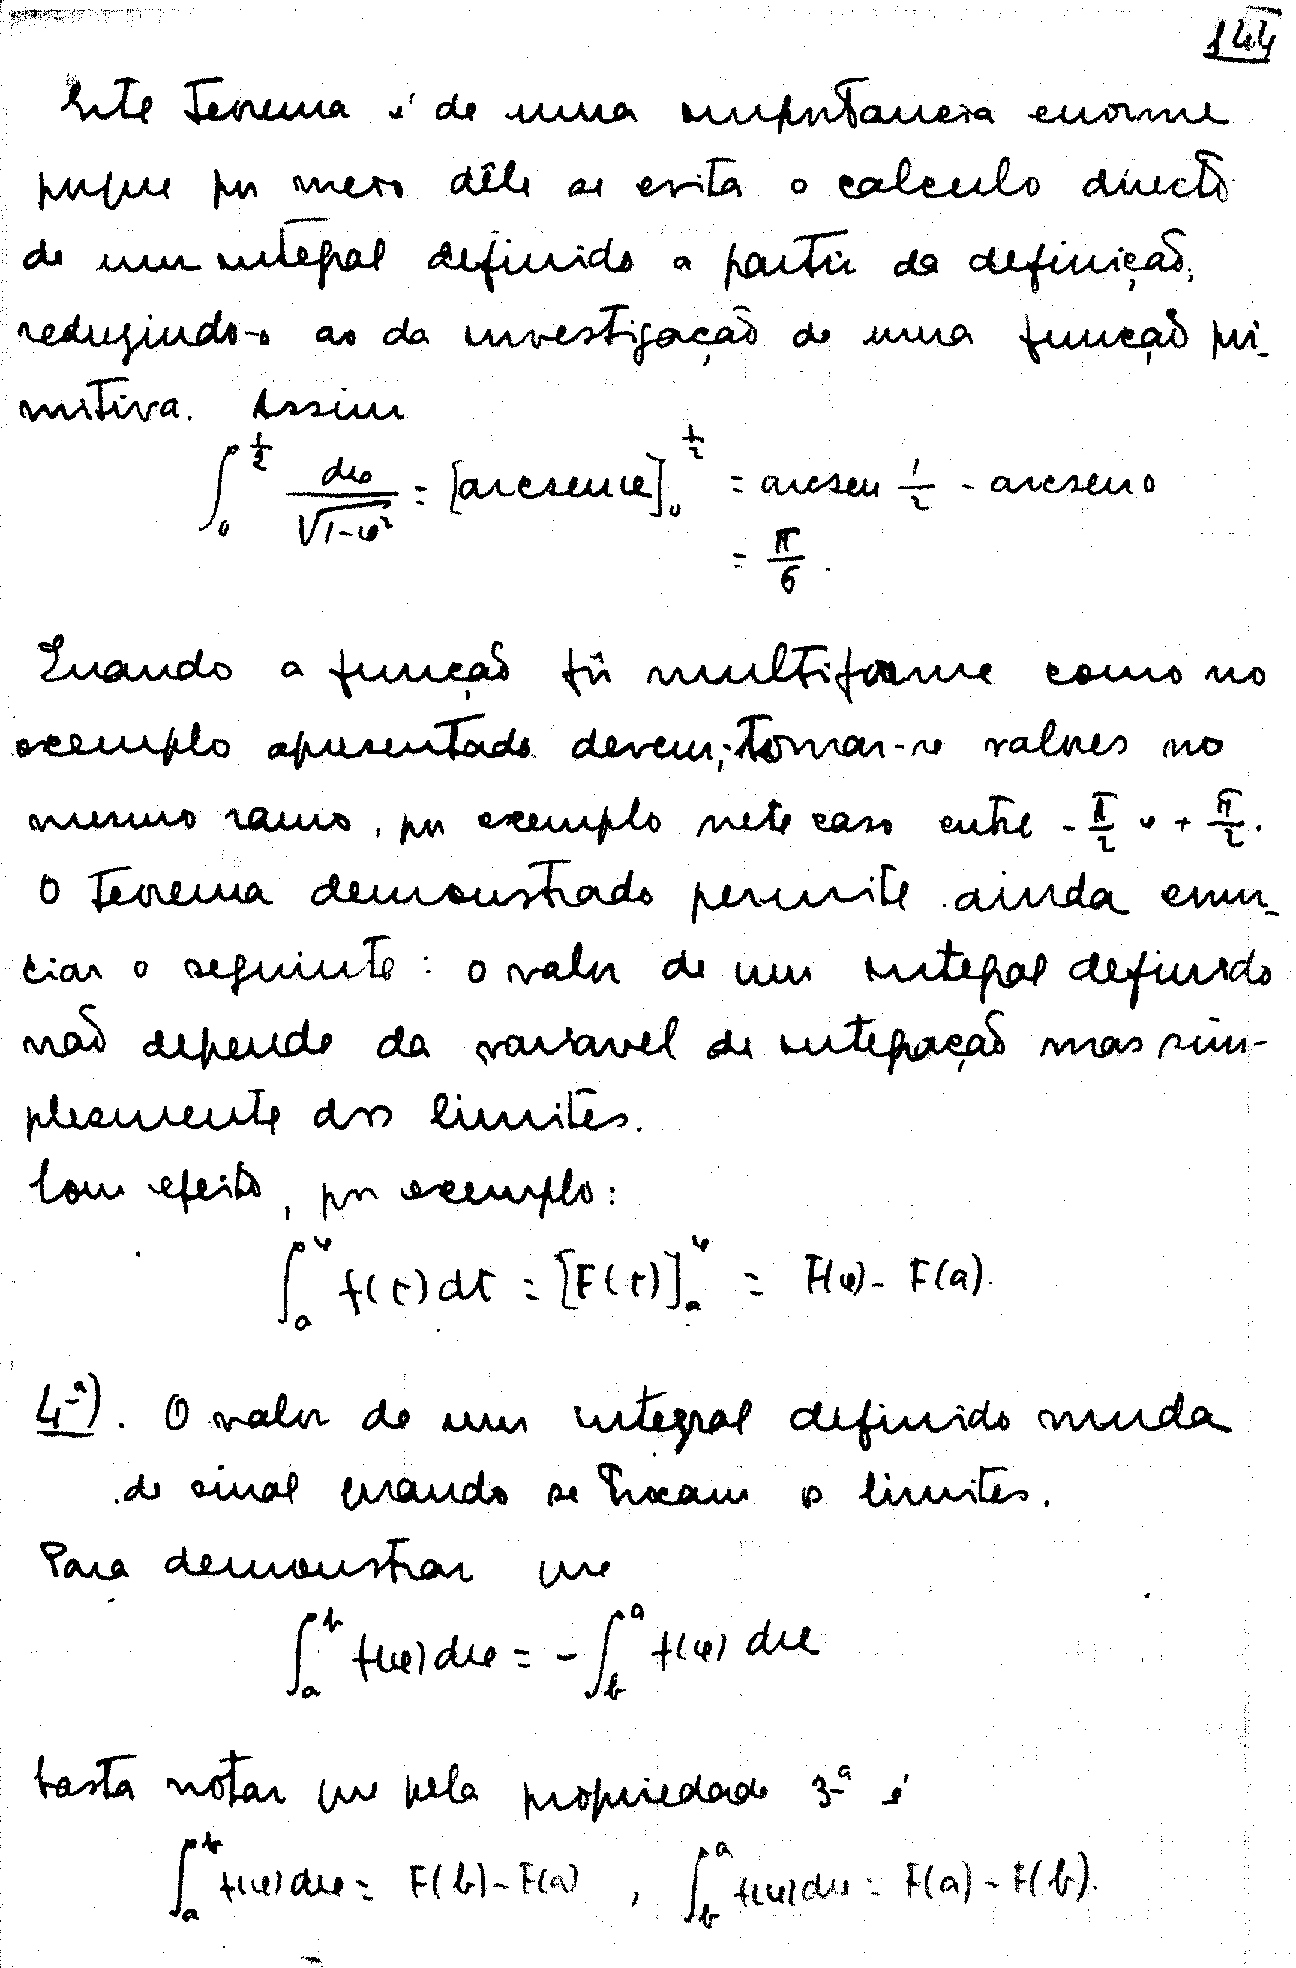 144
Este Teorema é de uma importancia enorme
porque por meio dêle se evita o calculo directo
de um integral definido a partir da definição,
reduzindo-o ao da investigação de uma função pri-
mitiva. Assim
∫₀^{1/2} dx/√(1-x²) = [arcsen x]₀^{1/2} = arcsen 1/2 - arcsen 0
= π/6.
Quando a função fôr multiforme como no
exemplo apresentado devem, tomar-se valores no
mesmo ramo, por exemplo neste caso entre -π/2 e +π/2.
O Teorema demonstrado permite ainda enun-
ciar o seguinte: o valor de um integral definido
não depende da variavel de integração mas sim-
plesmente dos limites.
Com efeito, por exemplo:
∫ₐˣ f(t)dt = [F(t)]ₐˣ = F(x) - F(a).
4ª). O valor de um integral definido muda
de sinal quando se trocam os limites.
Para demonstrar que
∫ₐᵇ f(x)dx = -∫_bᵃ f(x) dx
basta notar que pela propriedade 3ª é
∫ₐᵇ f(x)dx = F(b)-F(a) , ∫_bᵃ f(x)dx = F(a)-F(b).